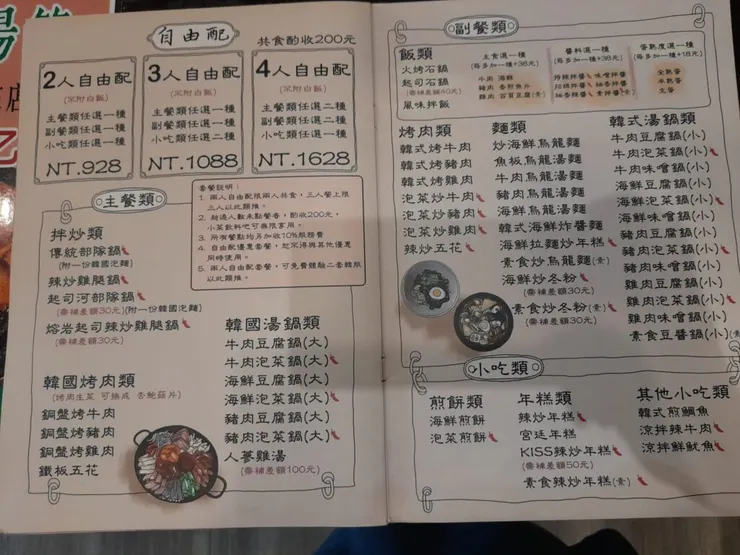 自由配
共食酌收200元
2人自由配
(不附白飯)
主餐類任選一種
副餐類任選一種
小吃類任選一種
NT.928
3人自由配
(不附白飯)
主餐類任選一種
副餐類任選二種
小吃類任選一種
NT.1088
4人自由配
(不附白飯)
主餐類任選二種
副餐類任選二種
小吃類任選二種
NT.1628
套餐說明：
1. 兩人自由配限兩人共食，三人餐上限
三人以此類推。
酌收200元，
小菜飲料吧可無限享用。
3. 所有餐點均另加收10%服務費
4. 自由配優惠套餐，恕不得與其他優惠
同時使用。
5. 兩人自由配套餐，可免費體驗二套韓服
以此類推。
主餐類
拌炒類
傳統部隊鍋
(附一份韓國泡麵)
辣炒雞腿鍋
起司河部隊鍋
(需補差額30元)(附一份韓國泡麵)
熔岩起司辣炒雞腿鍋
(需補差額30元)
韓國烤肉類
(烤肉生菜 可換成 杏鮑菇片)
銅盤烤牛肉
銅盤烤豬肉
銅盤烤雞肉
鐵板五花
韓國湯鍋類
牛肉豆腐鍋(大)
牛肉泡菜鍋(大)
海鮮豆腐鍋(大)
海鮮泡菜鍋(大)
豬肉豆腐鍋(大)
豬肉泡菜鍋(大)
人蔘雞湯
(需補差額100元)
副餐類
飯類
火烤石鍋
起司石鍋
(需補差額40元)
風味拌飯
主食選一種
(每多加一種+38元)
牛肉 海鮮
豬肉 杏鮑魚片
雞肉 百頁豆腐(素)
醬料選一種
(每多加一種+38元)
蛋熟度選一種
(每多加一種+18元)
全熟蛋
半熟蛋
生蛋
烤肉類
韓式烤牛肉
韓式烤豬肉
韓式烤雞肉
泡菜炒牛肉
泡菜炒豬肉
泡菜炒雞肉
辣炒五花
麵類
炒海鮮烏龍麵
魚板烏龍湯麵
牛肉烏龍湯麵
豬肉烏龍湯麵
海鮮烏龍湯麵
韓式海鮮炸醬麵
海鮮拉麵炒年糕
素食炒烏龍麵(素)
海鮮炒冬粉
(需補差額30元)
素食炒冬粉(素)
(需補差額30元)
韓式湯鍋類
牛肉豆腐鍋(小)
牛肉泡菜鍋(小)
牛肉味噌鍋(小)
海鮮豆腐鍋(小)
海鮮泡菜鍋(小)
海鮮味噌鍋(小)
豬肉豆腐鍋(小)
豬肉泡菜鍋(小)
豬肉味噌鍋(小)
雞肉豆腐鍋(小)
雞肉泡菜鍋(小)
雞肉味噌鍋(小)
素食豆醬鍋(小)(素)
小吃類
煎餅類
海鮮煎餅
泡菜煎餅
年糕類
辣炒年糕
宮廷年糕
KISS辣炒年糕
(需補差額50元)
素食辣炒年糕(素)
其他小吃類
韓式煎鯛魚
涼拌辣牛肉
涼拌鮮魷魚